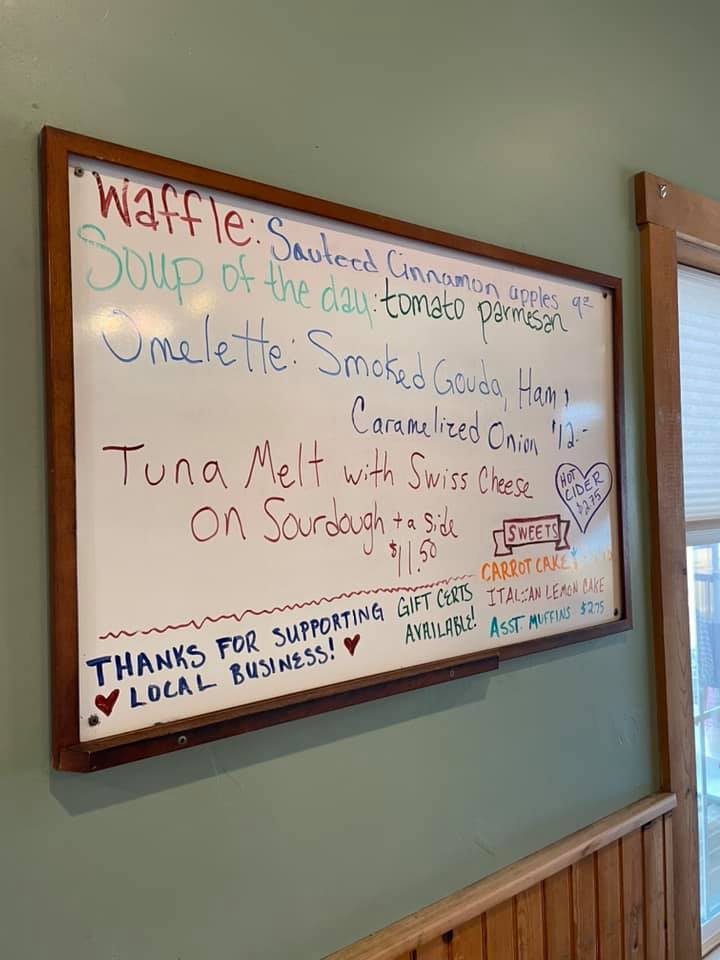 Waffle: Sauteed Cinnamon apples
Soup of the day: tomato parmesan
Omelette: Smoked Gouda, Ham,
Caramelized Onion $12.-
Tuna Melt with Swiss Cheese
on Sourdough + a Side
$11.50
HOT
CIDER
$2.75
SWEETS
CARROT CAKE
ITALIAN LEMON CAKE
ASST. MUFFINS $2.75
GIFT CERTS
AVAILABLE!
THANKS FOR SUPPORTING
LOCAL BUSINESS!